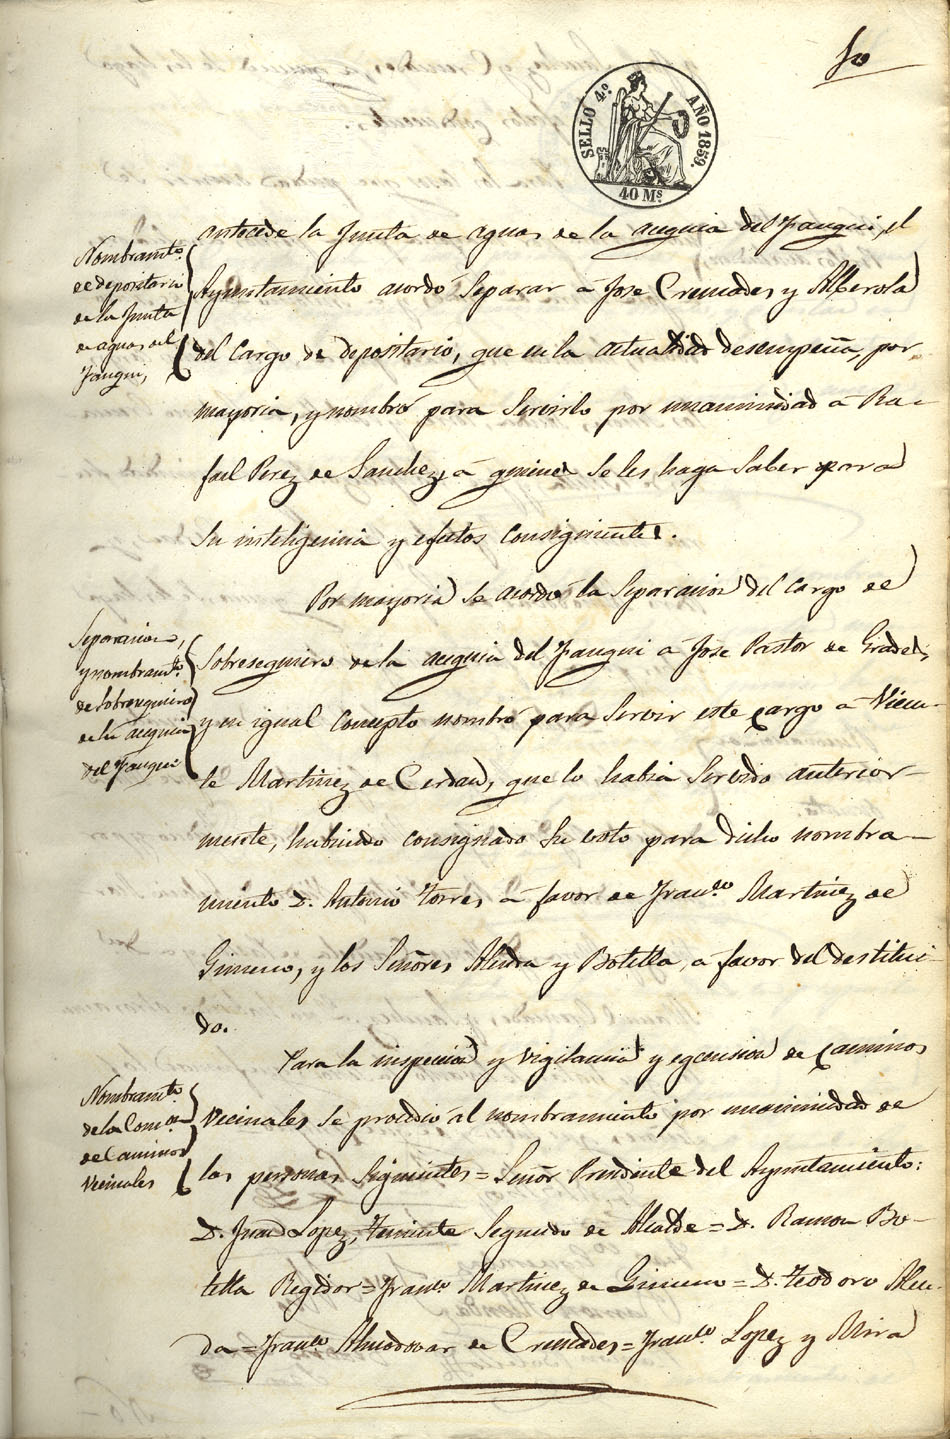 50
SELLO 4.º AÑO 1859.
40 Ms
antecede la Junta de aguas de la acequia del Fauqui, el
Nombramto.
de depositario
de la Junta
de aguas del
Fauqui,
Ayuntamiento acordó Separar á Jose Cremades y Alberola
del Cargo de depositario, que en la actualidad desempeña, por
mayoria, y nombró para Servirlo por unanimidad á Ra-
fael Perez de Sanchez, á quienes Se les haga Saber para
Su inteligencia y efectos Consiguientes.
Por mayoria Se acordó la Separacion del Cargo de
Separacion,
y nombramto.
de Sobrecequiero
de la acequia
del Fauqui
Sobresequiero de la acequia del Fauqui á Jose Pastor de Gradeli,
y en igual Concepto nombró para Servir este Cargo á Vicen-
te Martinez de Cerdan, que lo habia Servido anterior-
mente, habiendo Consignado Su voto para dicho nombra-
miento D. Antonio Torres á favor de Franco. Martinez de
Gimeno, y los Señores Alenda y Botella, á favor del destitui-
do.
Para la inspeccion y vigilancia y egecucion de Caminos
Nombramto.
de la Comon.
de Caminos
Vecinales
Vecinales se procedió al nombramiento por unanimidad de
las personas Siguientes = Señor Presidente del Ayuntamiento:
D. Juan Lopez, Teniente Segundo de Alcalde = D. Ramon Bo-
tella Regidor = Franco. Martinez de Gimeno = D. Teodoro Alen-
da = Franco. Almodovar de Cremades = Franco. Lopez y Mira